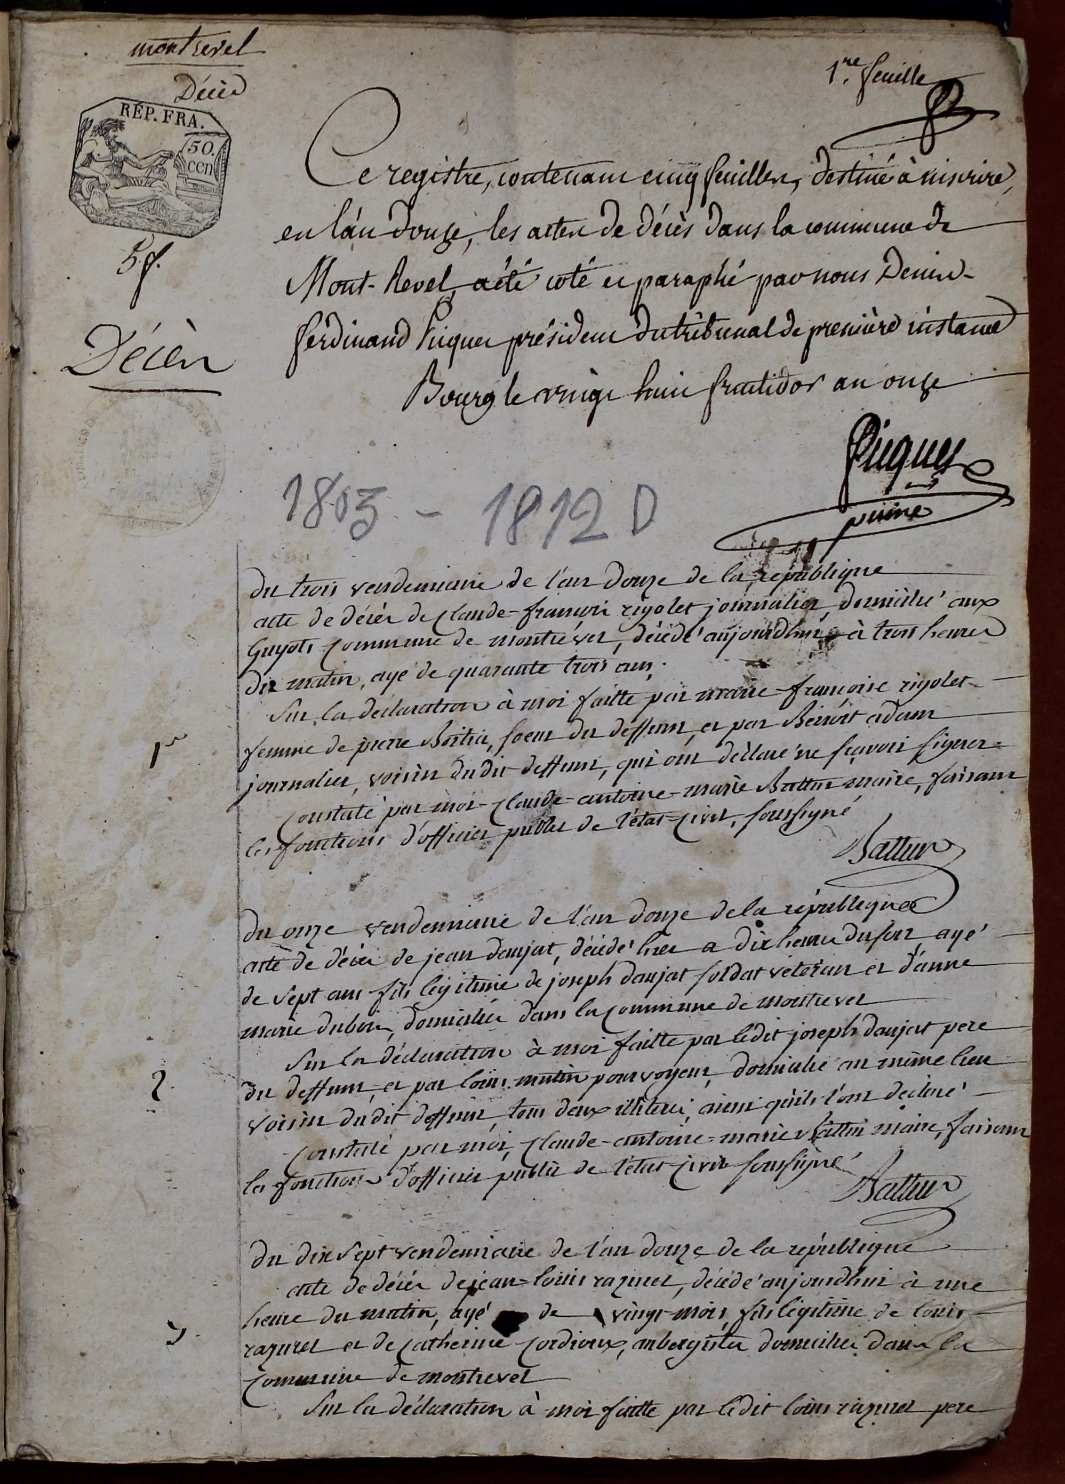 montrevel
Décès
1.re feuille
RÉP. FRA.
50.
cen
5 f.
Décès
Ce registre, contenant cinq feuilles, destiné à inscrire,
en l'an douze, les actes de décès dans la commune de
Mont-Revel, a été coté et paraphé par nous Denis-
ferdinand Picquet président du tribunal de première instance
Bourg le vingt huit fructidor an onze
Picquet
1803 - 1812 D
du trois vendemiaire de l'an douze de la republique
acte de décès de Claude-francois rigolet journalier domicilié aux
Guyots commune de montrevel, décédé aujourdhui à trois heures
du matin, agé de quarante trois ans.
Sur la déclaration à moi faitte par marie-francoise rigolet
1er
femme de pierre , soeur du deffunt, et par Benoit adam
journalier, voisin du dit deffunt, qui ont déclaré ne sçavoir signer
Constaté par moi-Claude-antoine-marie maire, faisant
les fonctions d'officier public de l'état-civil, soussigné
du onze vendemiaire de l'an douze de la république
acte de décés de jean daujat, décédé hier a dix heures du soir, agé
de sept ans fils légitime de joseph daujat soldat véteran et d'anne
marie dubois, domiciliés dans la Commune de montrevel
Sur la déclaration à moi faitte par ledit joseph daujat pere
2.
du deffunt, et par louis mutin pourvoyeur, domicilié au même lieu
voisin du dit deffunt, tous deux illiterés, ainsi qu'ils l'ont déclaré
Constaté par moi, Claude-antoine-marie maire, faisant
les fonctions d'officier public de l'état-civil soussigné
du dix sept vendemiaire de l'an douze de la république
acte de décés de jean-louis razurel, décédé aujourdhui à une
heure du matin, agé de vingt mois, fils légitime de louis
3.
razurel et de Catherine Cordioux, aubergistes domiciliés dans la
Commune de montrevel
Sur la déclaration à moi faitte par ledit louis razurel pere